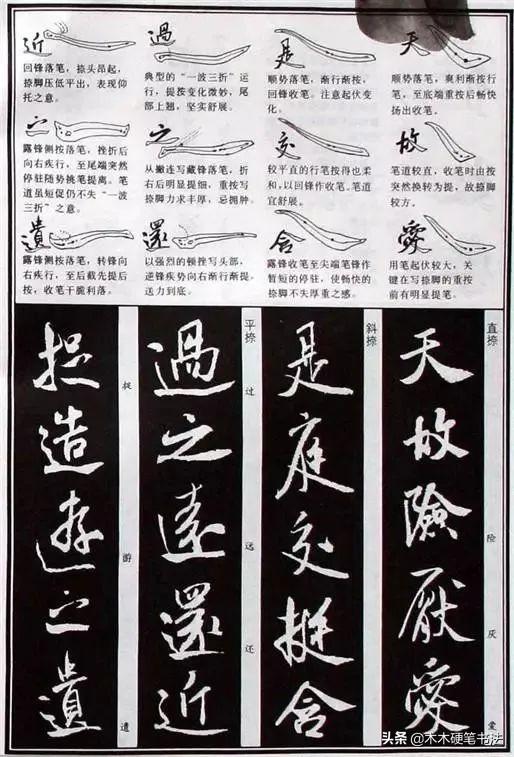 天
顺势落笔，爽利渐按行
笔，至底端重按后畅快
扬出收笔。
故
笔道较直，收笔时由按
突然换转为提，故捺脚
较方。
愛
用笔起伏较大，关
键在写捺脚的重按
前有明显提笔。
是
顺势落笔，渐行渐按，
回锋收笔。注意起伏变
化。
交
较平直的行笔按得也柔
和，以回锋作收笔。笔道
宜舒展。
含
露锋收笔至尖端笔锋作
暂短的停驻，使畅快的
捺脚不失厚重之感。
過
典型的“一波三折”运
行，提按变化微妙，尾
部上翘，坚实舒展。
之
从撇连写藏锋落笔，折
右后明显提细，重按写
捺脚力求丰厚，忌拥肿。
還
以强烈的顿挫写头部，
逆锋疾势向右渐行渐提，
送力到底。
近
回锋落笔，捺头昂起，
捺脚压低平出，表现仰
托之意。
之
露锋侧按落笔，挫折后
向右疾行，至尾端突然
停驻随势挑笔提离。笔
道虽短促仍不失“一波
三折”之意。
遺
露锋侧按落笔，转锋向
右疾行，至后截先提后
按，收笔干脆利落。
直捺
险
厌
爱
天故險厭愛
斜捺
是庭交挺含
平捺
过
远
还
過之遠還近
捉
游
遗
捉造遊之遺
头条 @木木硬笔书法